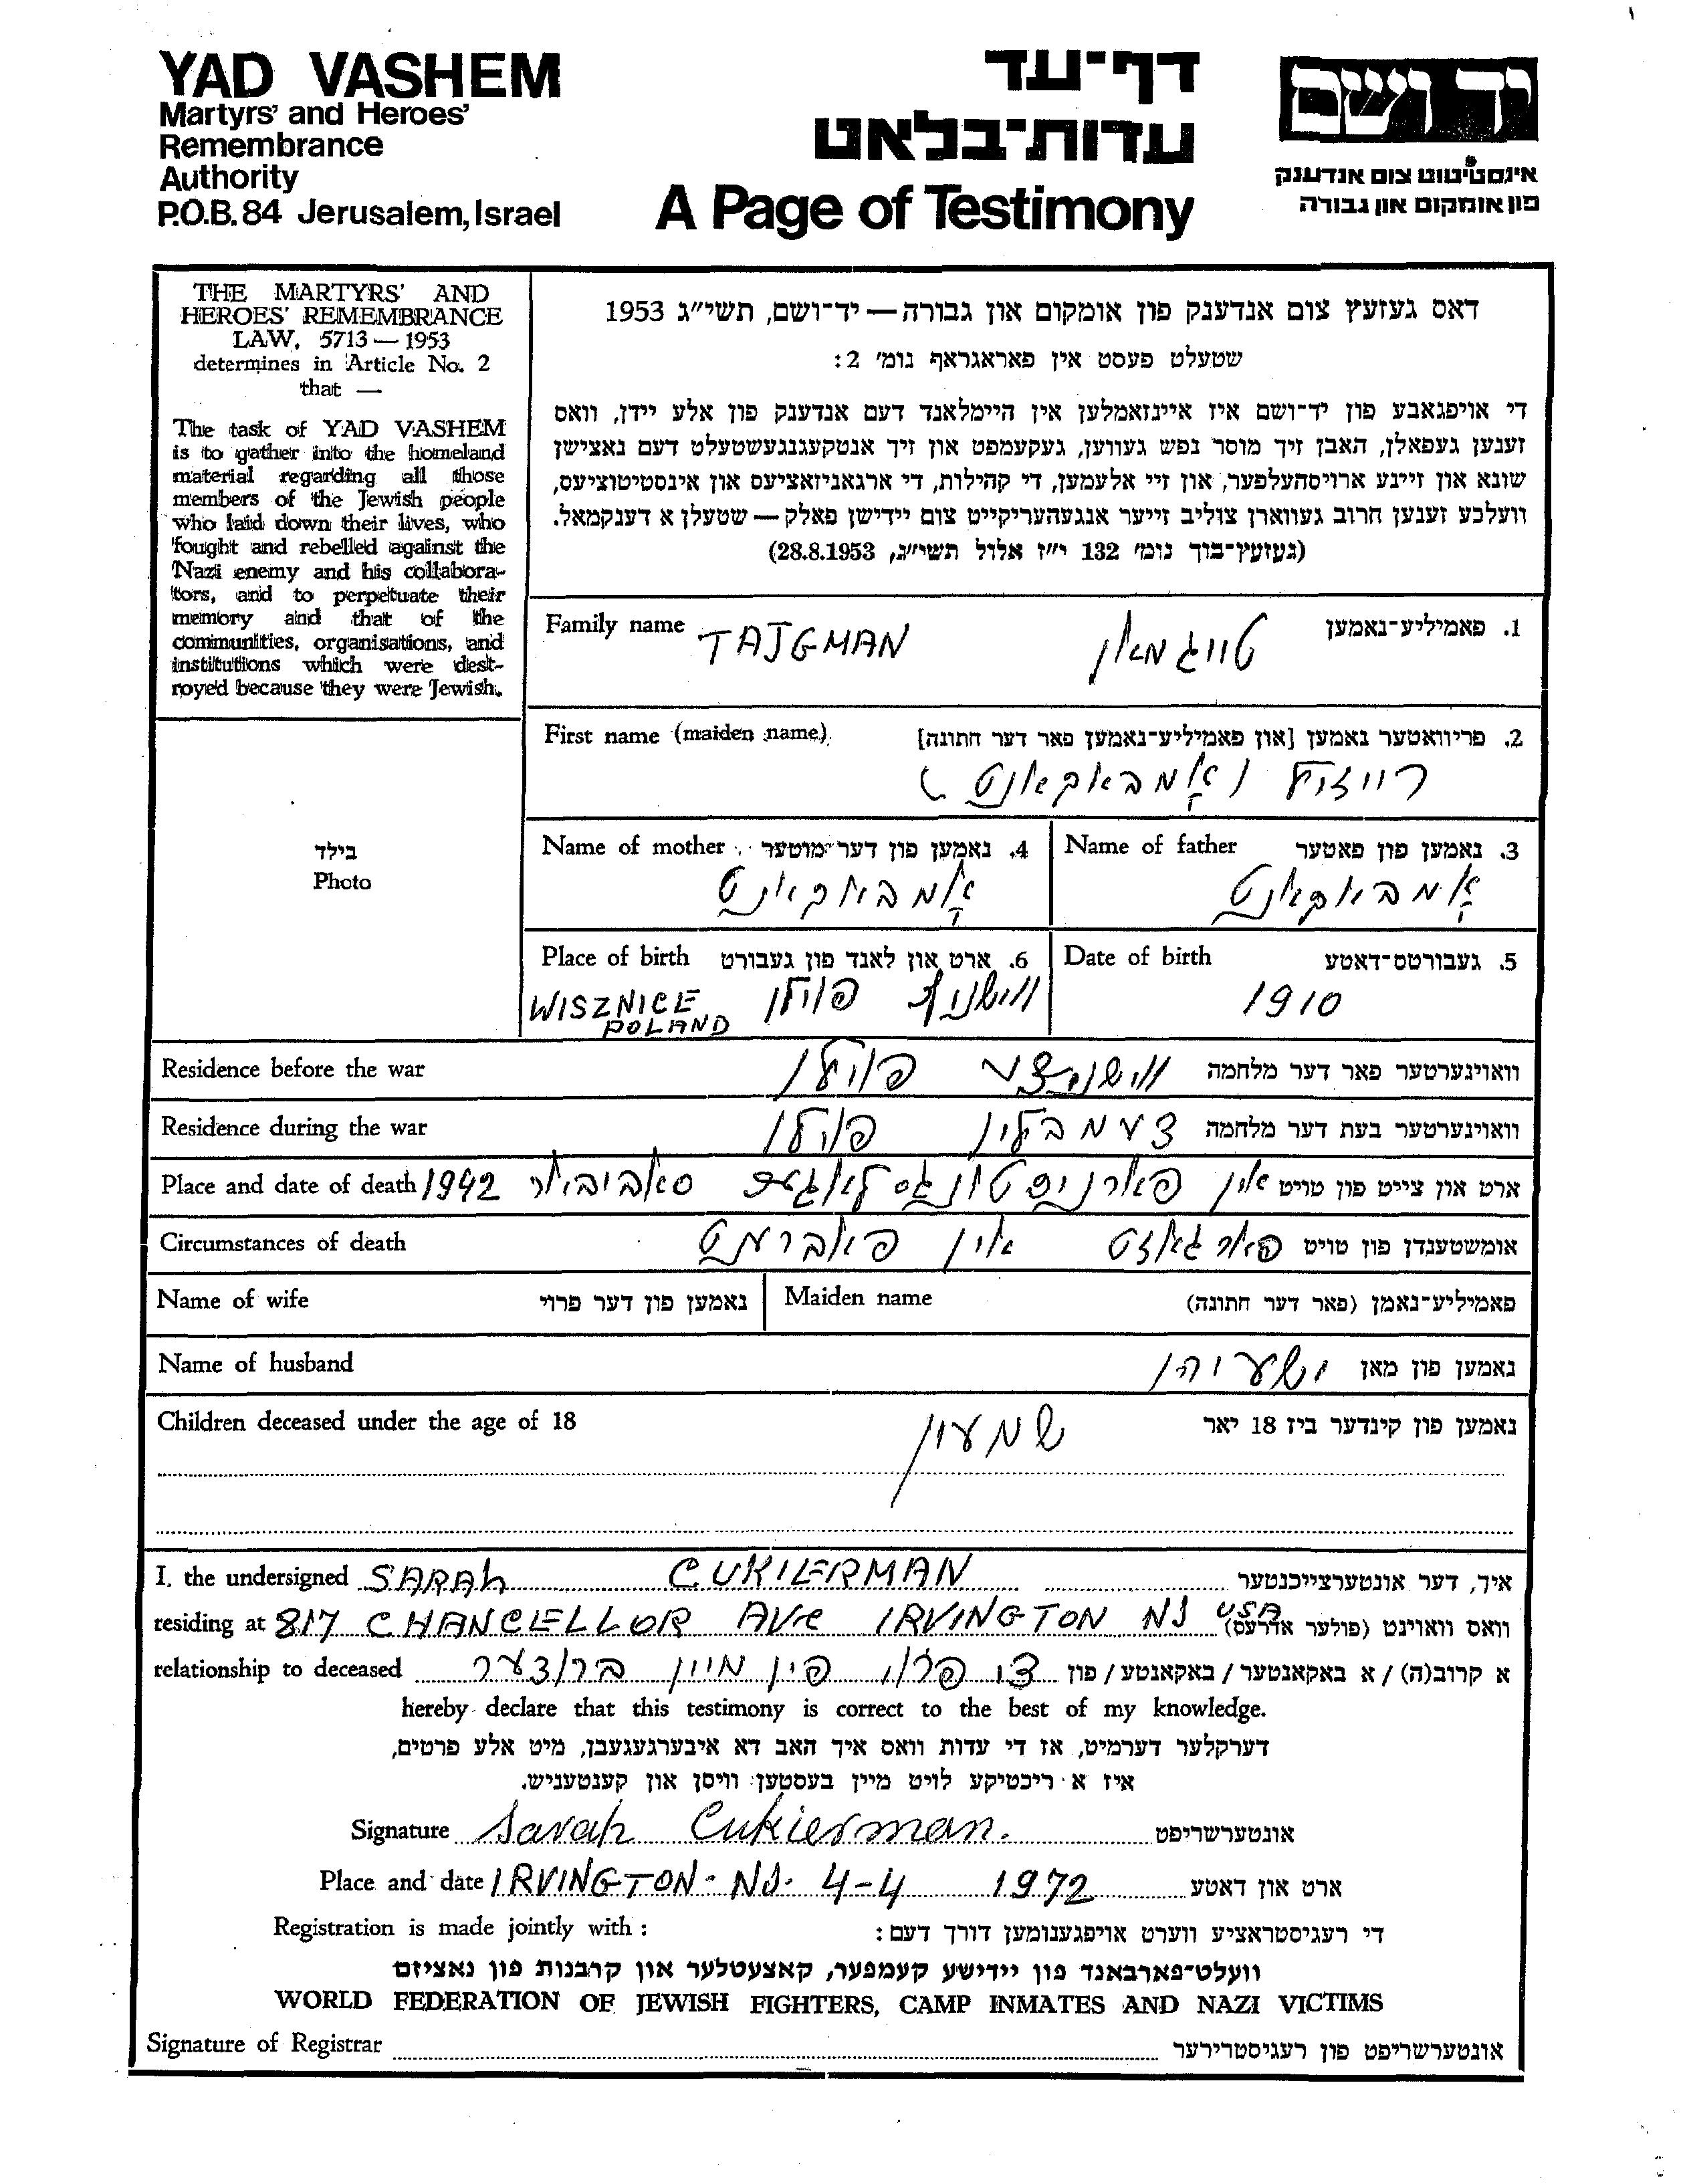 YAD VASHEM
Martyrs' and Heroes'
Remembrance
Authority
P.O.B. 84 Jerusalem, Israel
דף־עד
עדות־בלאט
A Page of Testimony
יד ושם
אינסטיטוט צום אנדענק
פון אומקום און גבורה
THE MARTYRS' AND
HEROES' REMEMBRANCE
LAW, 5713 — 1953
determines in Article No. 2
that —
The task of YAD VASHEM
is to gather into the homeland
material regarding all those
members of the Jewish people
who laid down their lives, who
fought and rebelled against the
Nazi enemy and his collabora-
tors, and to perpetuate their
memory and that of the
communities, organisations, and
institutions which were dest-
royed because they were Jewish.
דאס געזעץ צום אנדענק פון אומקום און גבורה — יד־ושם, תשי"ג 1953
שטעלט פעסט אין פאראגראף נומ' 2:
די אויפגאבע פון יד־ושם איז איינזאמלען אין היימלאנד דעם אנדענק פון אלע יידן, וואס
זענען געפאלן, האבן זיך מוסר נפש געווען, געקעמפט און זיך אנטקעגנגעשטעלט דעם נאצישן
שונא און זיינע ארויסהעלפער, און זיי אלעמען, די קהילות, די ארגאניזאציעס און אינסטיטוציעס,
וועלכע זענען חרוב געווארן צוליב זייער אנגעהעריקייט צום יידישן פאלק — שטעלן א דענקמאל.
(געזעץ־בוך נומ' 132 י"ז אלול תשי"ג, 28.8.1953)
Family name TAJGMAN טייגמאן 1. פאמיליע־נאמען
First name (maiden name) 2. פריוואטער נאמען [און פאמיליע־נאמען פאר דער חתונה]
רייזל (אָמבאקאנט)
בילד
Photo
Name of mother 4. נאמען פון דער מוטער
אָמבאקאנט
Name of father 3. נאמען פון פאטער
אָמבאקאנט
Place of birth 6. ארט און לאנד פון געבורט
WISZNICE פוילן
POLAND
Date of birth 5. געבורטס־דאטע
1910
Residence before the war ווישניצע פוילן וואוינערטער פאר דער מלחמה
Residence during the war פוילן וואוינערטער בעת דער מלחמה
Place and date of death 1942 אין פארניכטונגס לאגער סאביבאר ארט און צייט פון טויט
Circumstances of death פארגאזט אין אומשטענדן פון טויט
Name of wife נאמען פון דער פרוי Maiden name פאמיליע־נאמן (פאר דער חתונה)
Name of husband ישעיהו נאמען פון מאן
Children deceased under the age of 18 שמעון נאמען פון קינדער ביז 18 יאר
I, the undersigned SARAh CUKIERMAN איך, דער אונטערצייכנטער
residing at 817 CHANCELLOR AVE IRVINGTON NJ USA וואס וואוינט (פולער אדרעס)
relationship to deceased פרוי פון מיין ברודער א קרוב(ה) / א באקאנטער / באקאנטע / פון
hereby declare that this testimony is correct to the best of my knowledge.
דערקלער דערמיט, אז די עדות וואס איך האב דא איבערגעגעבן, מיט אלע פרטים,
איז א ריכטיקע לויט מיין בעסטען וויסן און קענטעניש.
Signature Sarah Cukierman. אונטערשריפט
Place and date IRVINGTON - NJ. 4-4 1972 ארט און דאטע
Registration is made jointly with : די רעגיסטראציע ווערט אויפגענומען דורך דעם :
וועלט־פארבאנד פון יידישע קעמפער, קאצעטלער און קרבנות פון נאציזם
WORLD FEDERATION OF JEWISH FIGHTERS, CAMP INMATES AND NAZI VICTIMS
Signature of Registrar אונטערשריפט פון רעגיסטרירער